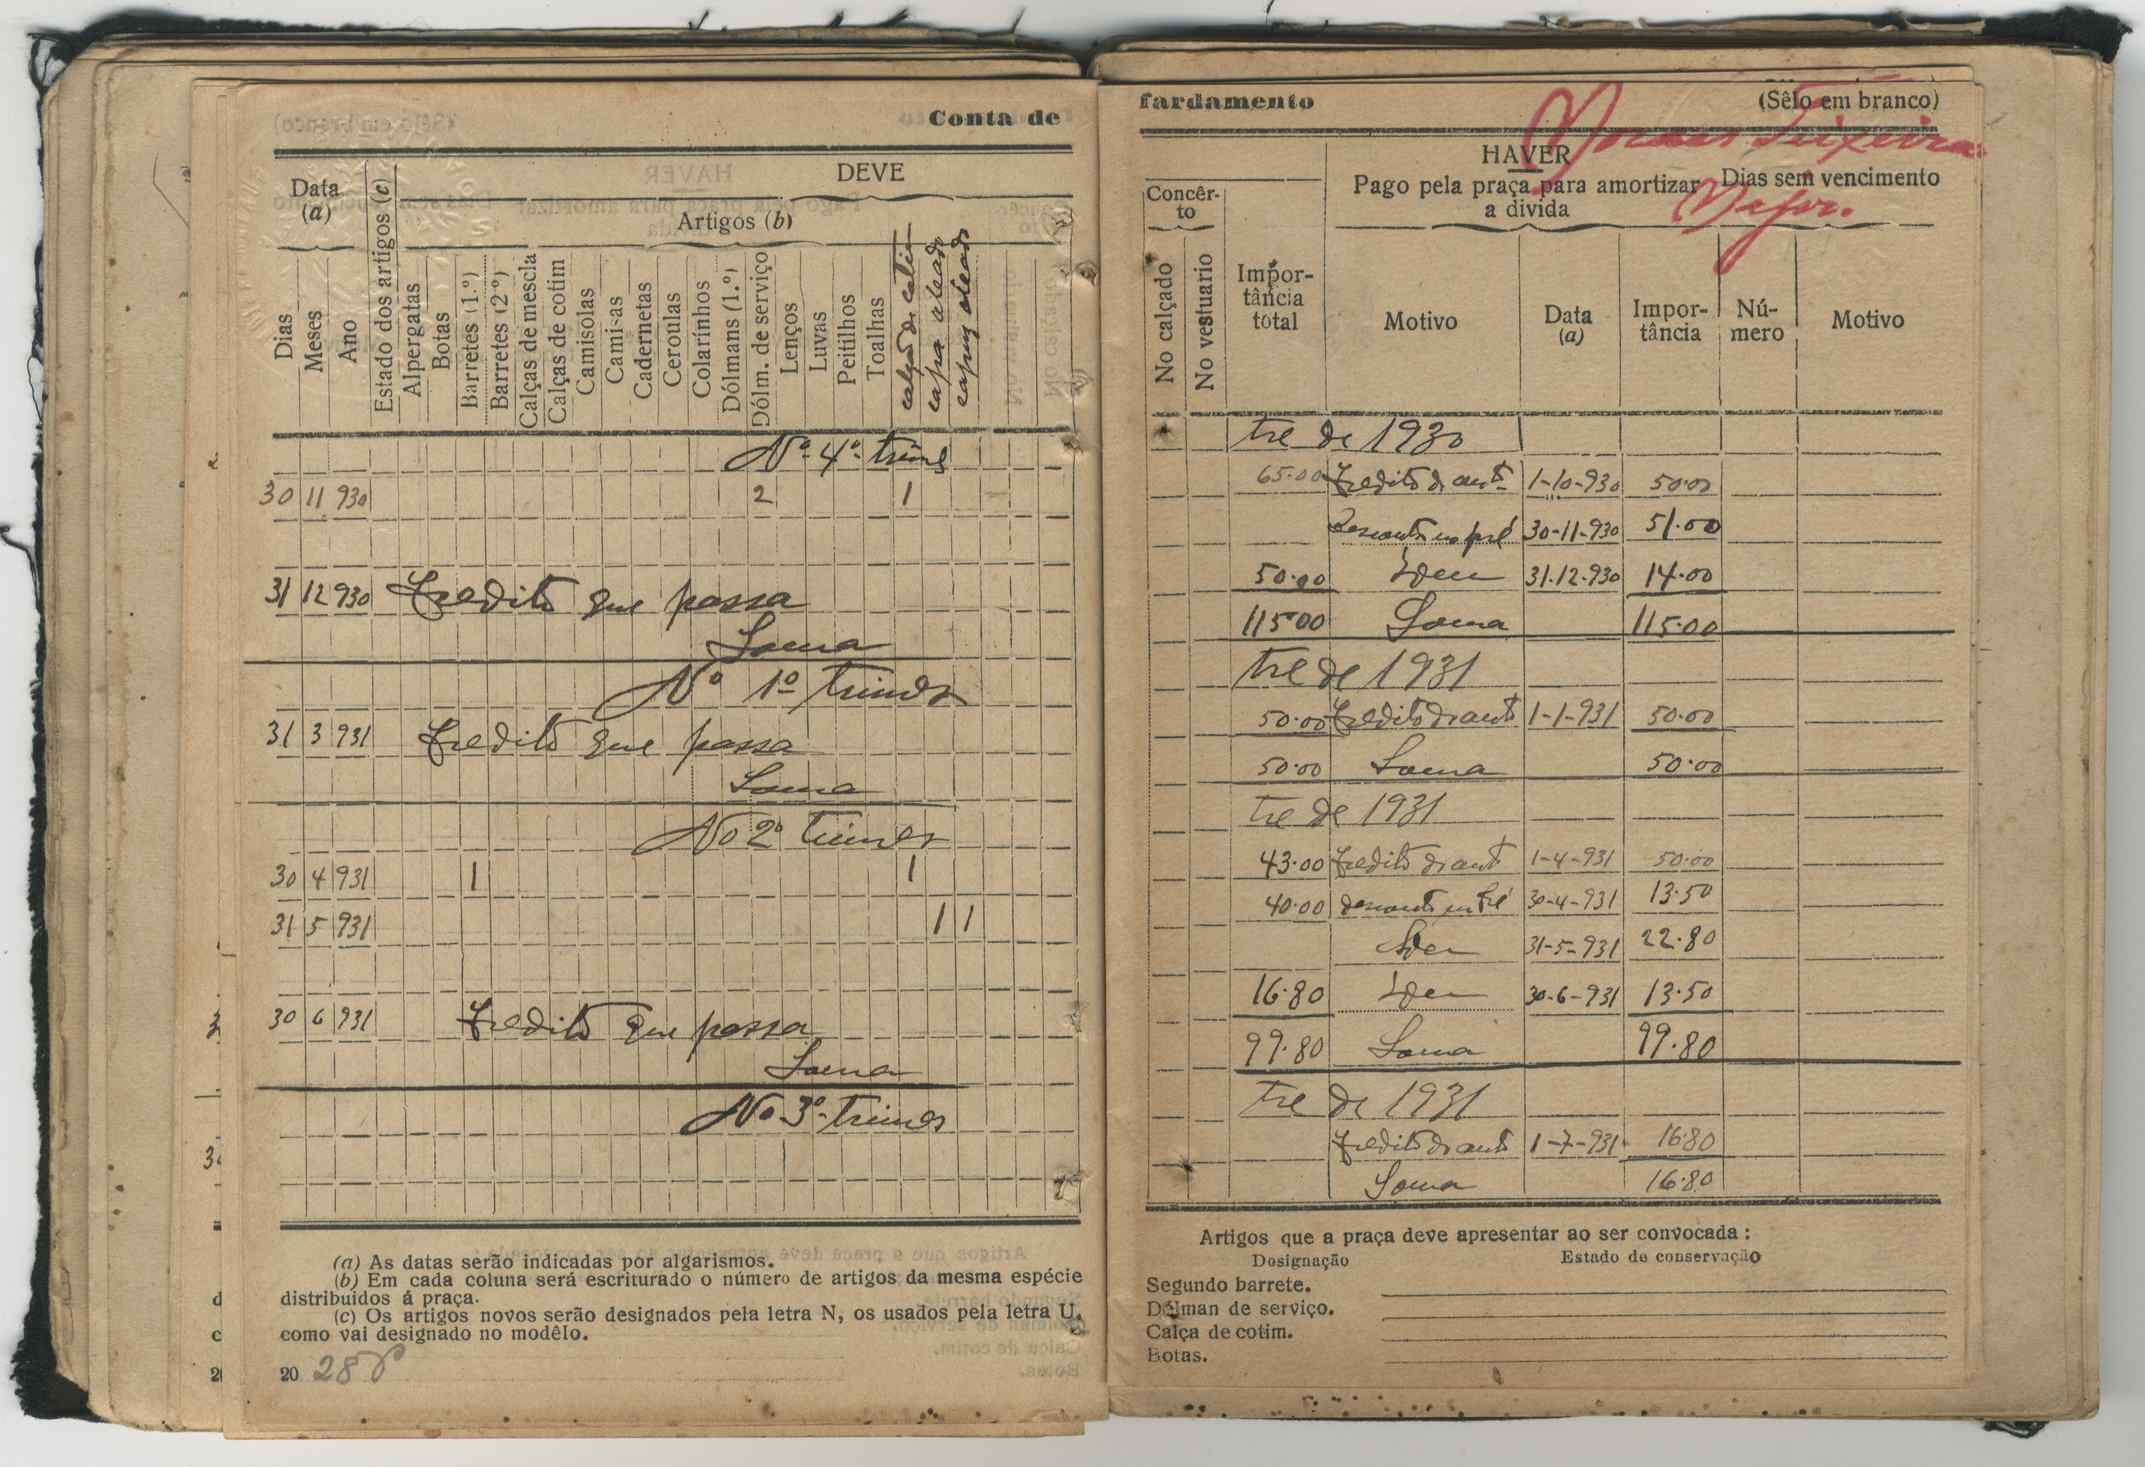 Conta de
DEVE
Data
(a)
Artigos (b)
Dias
Meses
Ano
Estado dos artigos (c)
Alpergatas
Botas
Barretes (1.º)
Barretes (2º)
Calças de mescla
Calças de cotim
Camisolas
Camisas
Cadernetas
Ceroulas
Colarínhos
Dólmans (1.º)
Dólm. de serviço
Lenços
Luvas
Peitilhos
Toalhas
calça de cotim
capa oleado
capuz oleado
No 4º trimes
30 11 930 2 1
31 12 930 Credito que passa
Soma
No 1º trimes
31 3 931 Credito que passa
Soma
No 2º trimes
30 4 931 1 1
31 5 931 1 1
30 6 931 Credito que passa
Soma
No 3º trimes
(a) As datas serão indicadas por algarismos.
(b) Em cada coluna será escriturado o número de artigos da mesma espécie
distribuidos á praça.
(c) Os artigos novos serão designados pela letra N, os usados pela letra U,
como vai designado no modêlo.
20 28
fardamento
(Sêlo em branco)
Moraes Teixeira
Major.
HAVER
Concêr-
to
Pago pela praça para amortizar
a divida
Dias sem vencimento
No calçado
No vestuario
Impor-
tância
total
Motivo
Data
(a)
Impor-
tância
Nú-
mero
Motivo
tre de 1930
65.00 Credito do ant 1-10-930 50.00
Desconto no pré 30-11-930 51.00
50.00 Idem 31.12.930 14.00
115.00 Soma 115.00
tre de 1931
50.00 Credito do ant 1-1-931 50.00
50.00 Soma 50.00
tre de 1931
43.00 Credito do ant 1-4-931 50.00
40.00 desconto no Pré 30-4-931 13.50
Idem 31-5-931 22.80
16.80 Idem 30-6-931 13.50
99.80 Soma 99.80
tre de 1931
Credito do ant 1-7-931 16.80
Soma 16.80
Artigos que a praça deve apresentar ao ser convocada :
Designação Estado de conservação
Segundo barrete.
Dólman de serviço.
Calça de cotim.
Botas.